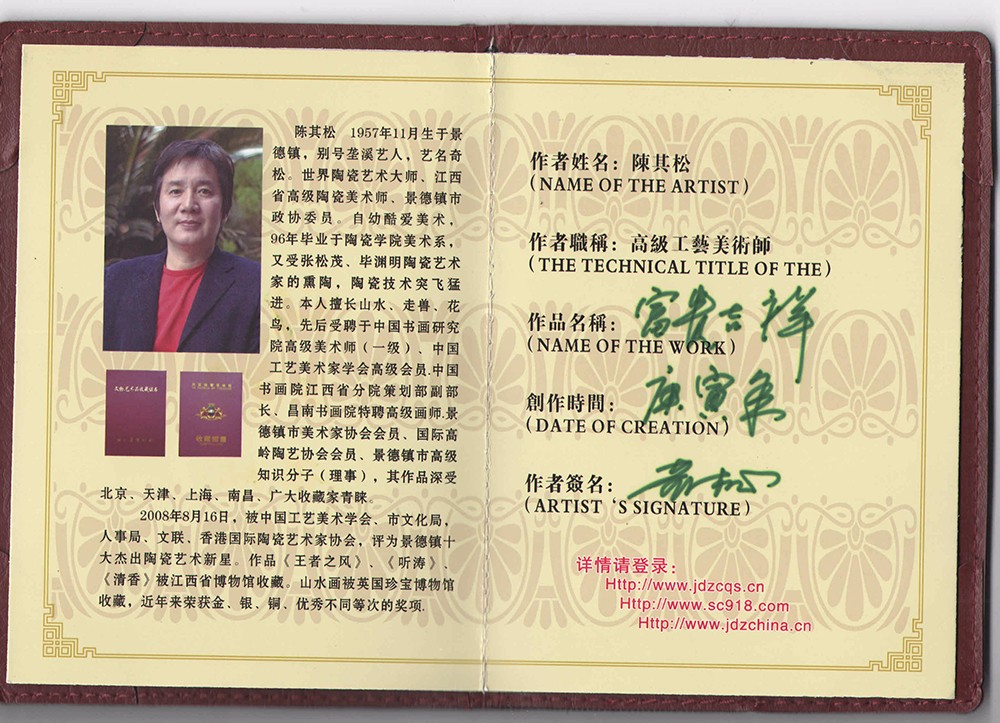 陈其松 1957年11月生于景
德镇，别号垄溪艺人，艺名奇
松。世界陶瓷艺术大师、江西
省高级陶瓷美术师、景德镇市
政协委员。自幼酷爱美术，
96年毕业于陶瓷学院美术系，
又受张松茂、毕渊明陶瓷艺术
家的熏陶，陶瓷技术突飞猛
进。本人擅长山水、走兽、花
鸟，先后受聘于中国书画研究
院高级美术师（一级）、中国
工艺美术家学会高级会员.中国
书画院江西省分院策划部副部
长、昌南书画院特聘高级画师.景
德镇市美术家协会会员、国际高
岭陶艺协会会员、景德镇市高级
知识分子（理事），其作品深受
北京、天津、上海、南昌、广大收藏家青睐。
2008年8月16日，被中国工艺美术学会、市文化局，
人事局、文联、香港国际陶瓷艺术家协会，评为景德镇十
大杰出陶瓷艺术新星。作品《王者之风》、《听涛》、
《清香》被江西省博物馆收藏。山水画被英国珍宝博物馆
收藏，近年来荣获金、银、铜、优秀不同等次的奖项.
作者姓名：陳其松
(NAME OF THE ARTIST)
作者職稱：高級工藝美術師
(THE TECHNICAL TITLE OF THE)
作品名稱：富贵吉祥
(NAME OF THE WORK)
創作時間：庚寅年
(DATE OF CREATION)
作者簽名：奇松
(ARTIST 'S SIGNATURE)
详情请登录：
Http://www.jdzcqs.cn
Http://www.sc918.com
Http://www.jdzchina.cn